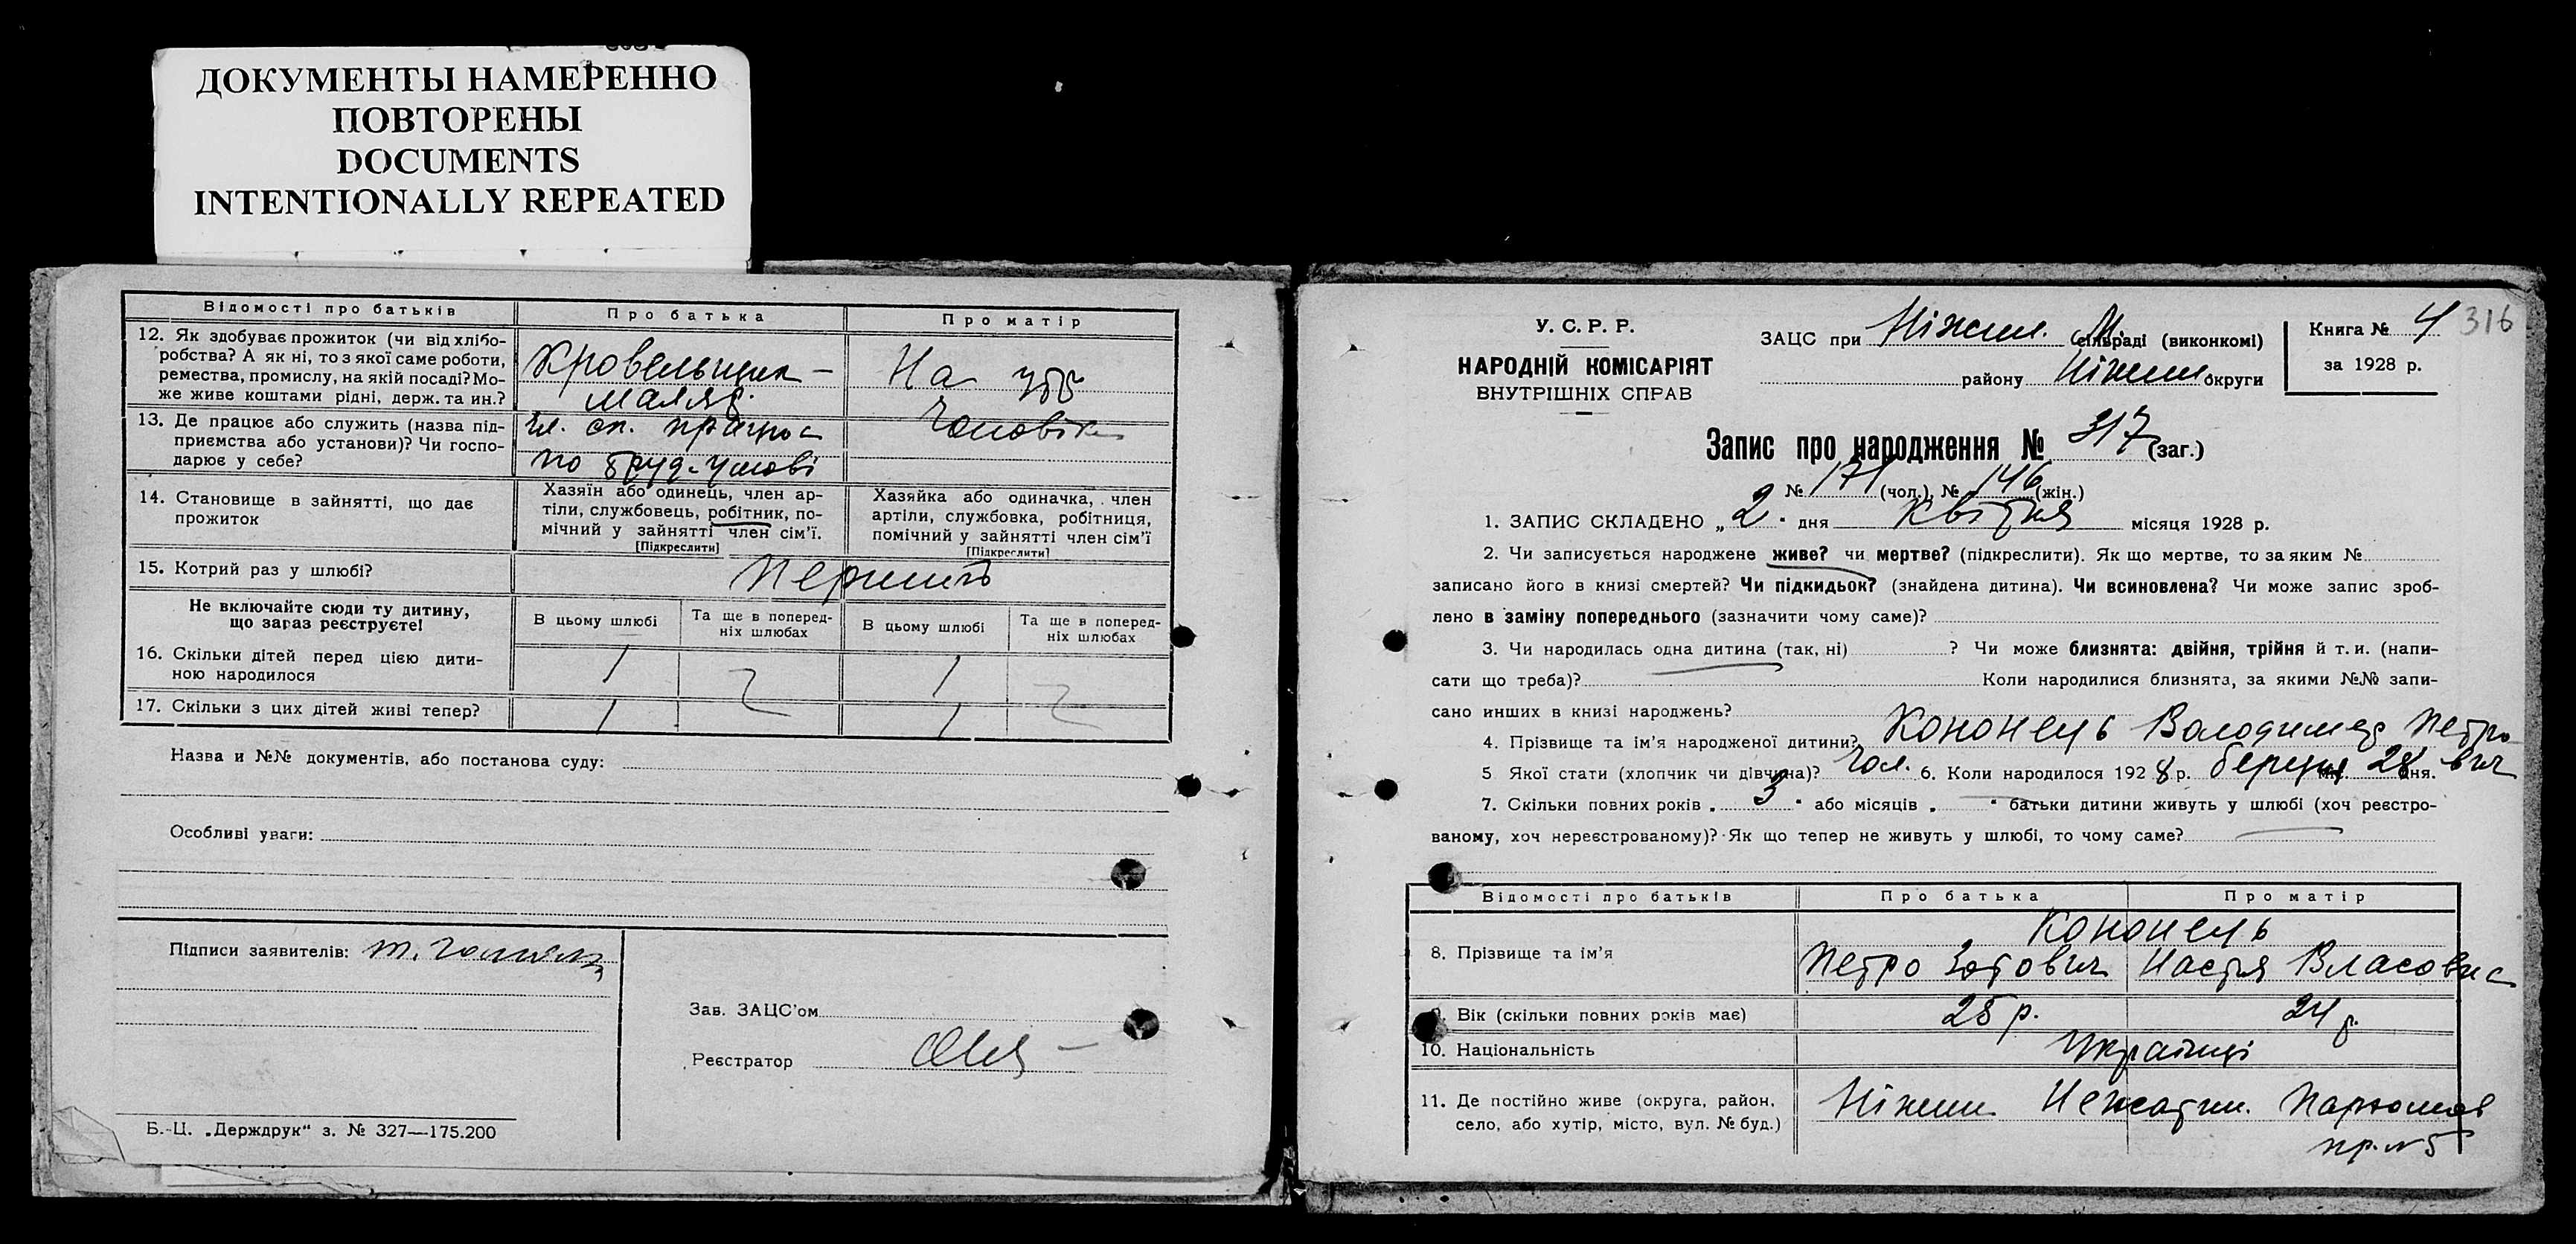 ДОКУМЕНТЫ НАМЕРЕННО
ПОВТОРЕНЫ
DOCUMENTS
INTENTIONALLY REPEATED
Відомості про батьків
Про батька
Про матір
12. Як здобуває прожиток (чи від хлібо-
робства? А як ні, то з якої саме роботи,
ремества, промислу, на якій посаді? Мо-
же живе коштами рідні, держ. та ин.?
Кровельщик -
маляр.
На утр
чоловіка
13. Де працює або служить (назва під-
приємства або установи)? Чи госпо-
дарює у себе?
по труд-умові
14. Становище в зайнятті, що дає
прожиток
Хазяїн або одинець, член ар-
тіли, службовець, робітник, по-
мічний у зайнятті член сім'ї.
[Підкреслити]
Хазяйка або одиначка, член
артіли, службовка, робітниця,
помічний у зайнятті член сім'ї
[Підкреслити]
15. Котрий раз у шлюбі?
Не включайте сюди ту дитину,
що зараз реєструєте!
В цьому шлюбі
Та ще в поперед-
ніх шлюбах
В цьому шлюбі
Та ще в поперед-
ніх шлюбах
16. Скільки дітей перед цією дити-
ною народилося
1
1
17. Скільки з цих дітей живі тепер?
1
1
Назва и №№ документів, або постанова суду:
Особливі уваги:
Підписи заявителів:
Зав. ЗАЦС'ом
Реєстратор
Б.-Ц. „Держдрук" з. № 327—175.200
У. С. Р. Р.
НАРОДНІЙ КОМІСАРІЯТ
ВНУТРІШНІХ СПРАВ
ЗАЦС при Ніжин. М. сільраді (виконкомі)
району Ніжин округи
Книга № 4 316
за 1928 р.
Запис про народження № 317 (заг.)
№ 171 (чол.), № 146 (жін.)
1. ЗАПИС СКЛАДЕНО „2" дня Квітня місяця 1928 р.
2. Чи записується народжене живе? чи мертве? (підкреслити). Як що мертве, то за яким №
записано його в книзі смертей? Чи підкидьок? (знайдена дитина). Чи всиновлена? Чи може запис зроб-
лено в заміну попереднього (зазначити чому саме)?
3. Чи народилась одна дитина (так, ні) ? Чи може близнята: двійня, трійня й т. и. (напи-
сати що треба)? Коли народилися близнята, за якими №№ запи-
сано инших в книзі народжень?
4. Прізвище та ім'я народженої дитини? Кононець Володимер Петро-
вич
5 Якої стати (хлопчик чи дівчина)? Чол. 6. Коли народилося 1928 р. березня 28 дня.
7. Скільки повних років „3" або місяців „—" батьки дитини живуть у шлюбі (хоч реєстро-
ваному, хоч нереєстрованому)? Як що тепер не живуть у шлюбі, то чому саме?
Відомості про батьків
Про батька
Про матір
8. Прізвище та ім'я
Кононець
Петро Зотович
Настя Власовна
9. Вік (скільки повних років має)
25 р.
24 р.
10. Національність
Українці
11. Де постійно живе (округа, район,
село, або хутір, місто, вул. № буд.)
Ніжин
пр. № 5